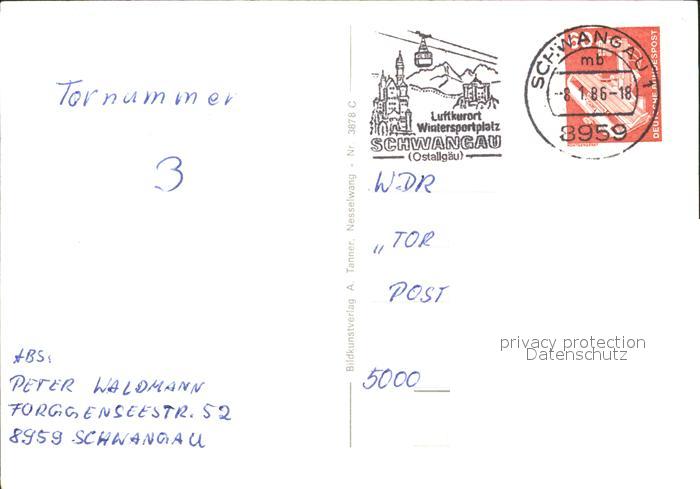 Tornummer
3
ABS:
PETER WALDMANN
FORGGENSEESTR. 52
8959 SCHWANGAU
Bildkunstverlag A. Tanner, Nesselwang - Nr. 3878 C
Luftkurort
Wintersportplatz
SCHWANGAU
(Ostallgäu)
SCHWANGAU 1
mb
-8.1.86-18
8959
60
DEUTSCHE BUNDESPOST
RÖNTGENGERÄT
WDR
„TOR
POST
5000
privacy protection
Datenschutz